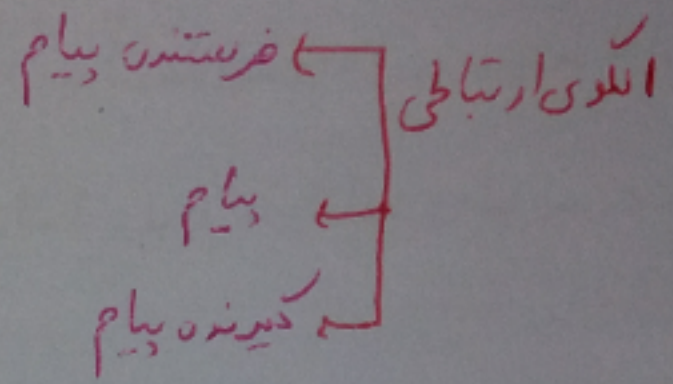 الگوی ارتباطی
فرستنده پیام
پیام
گیرنده پیام